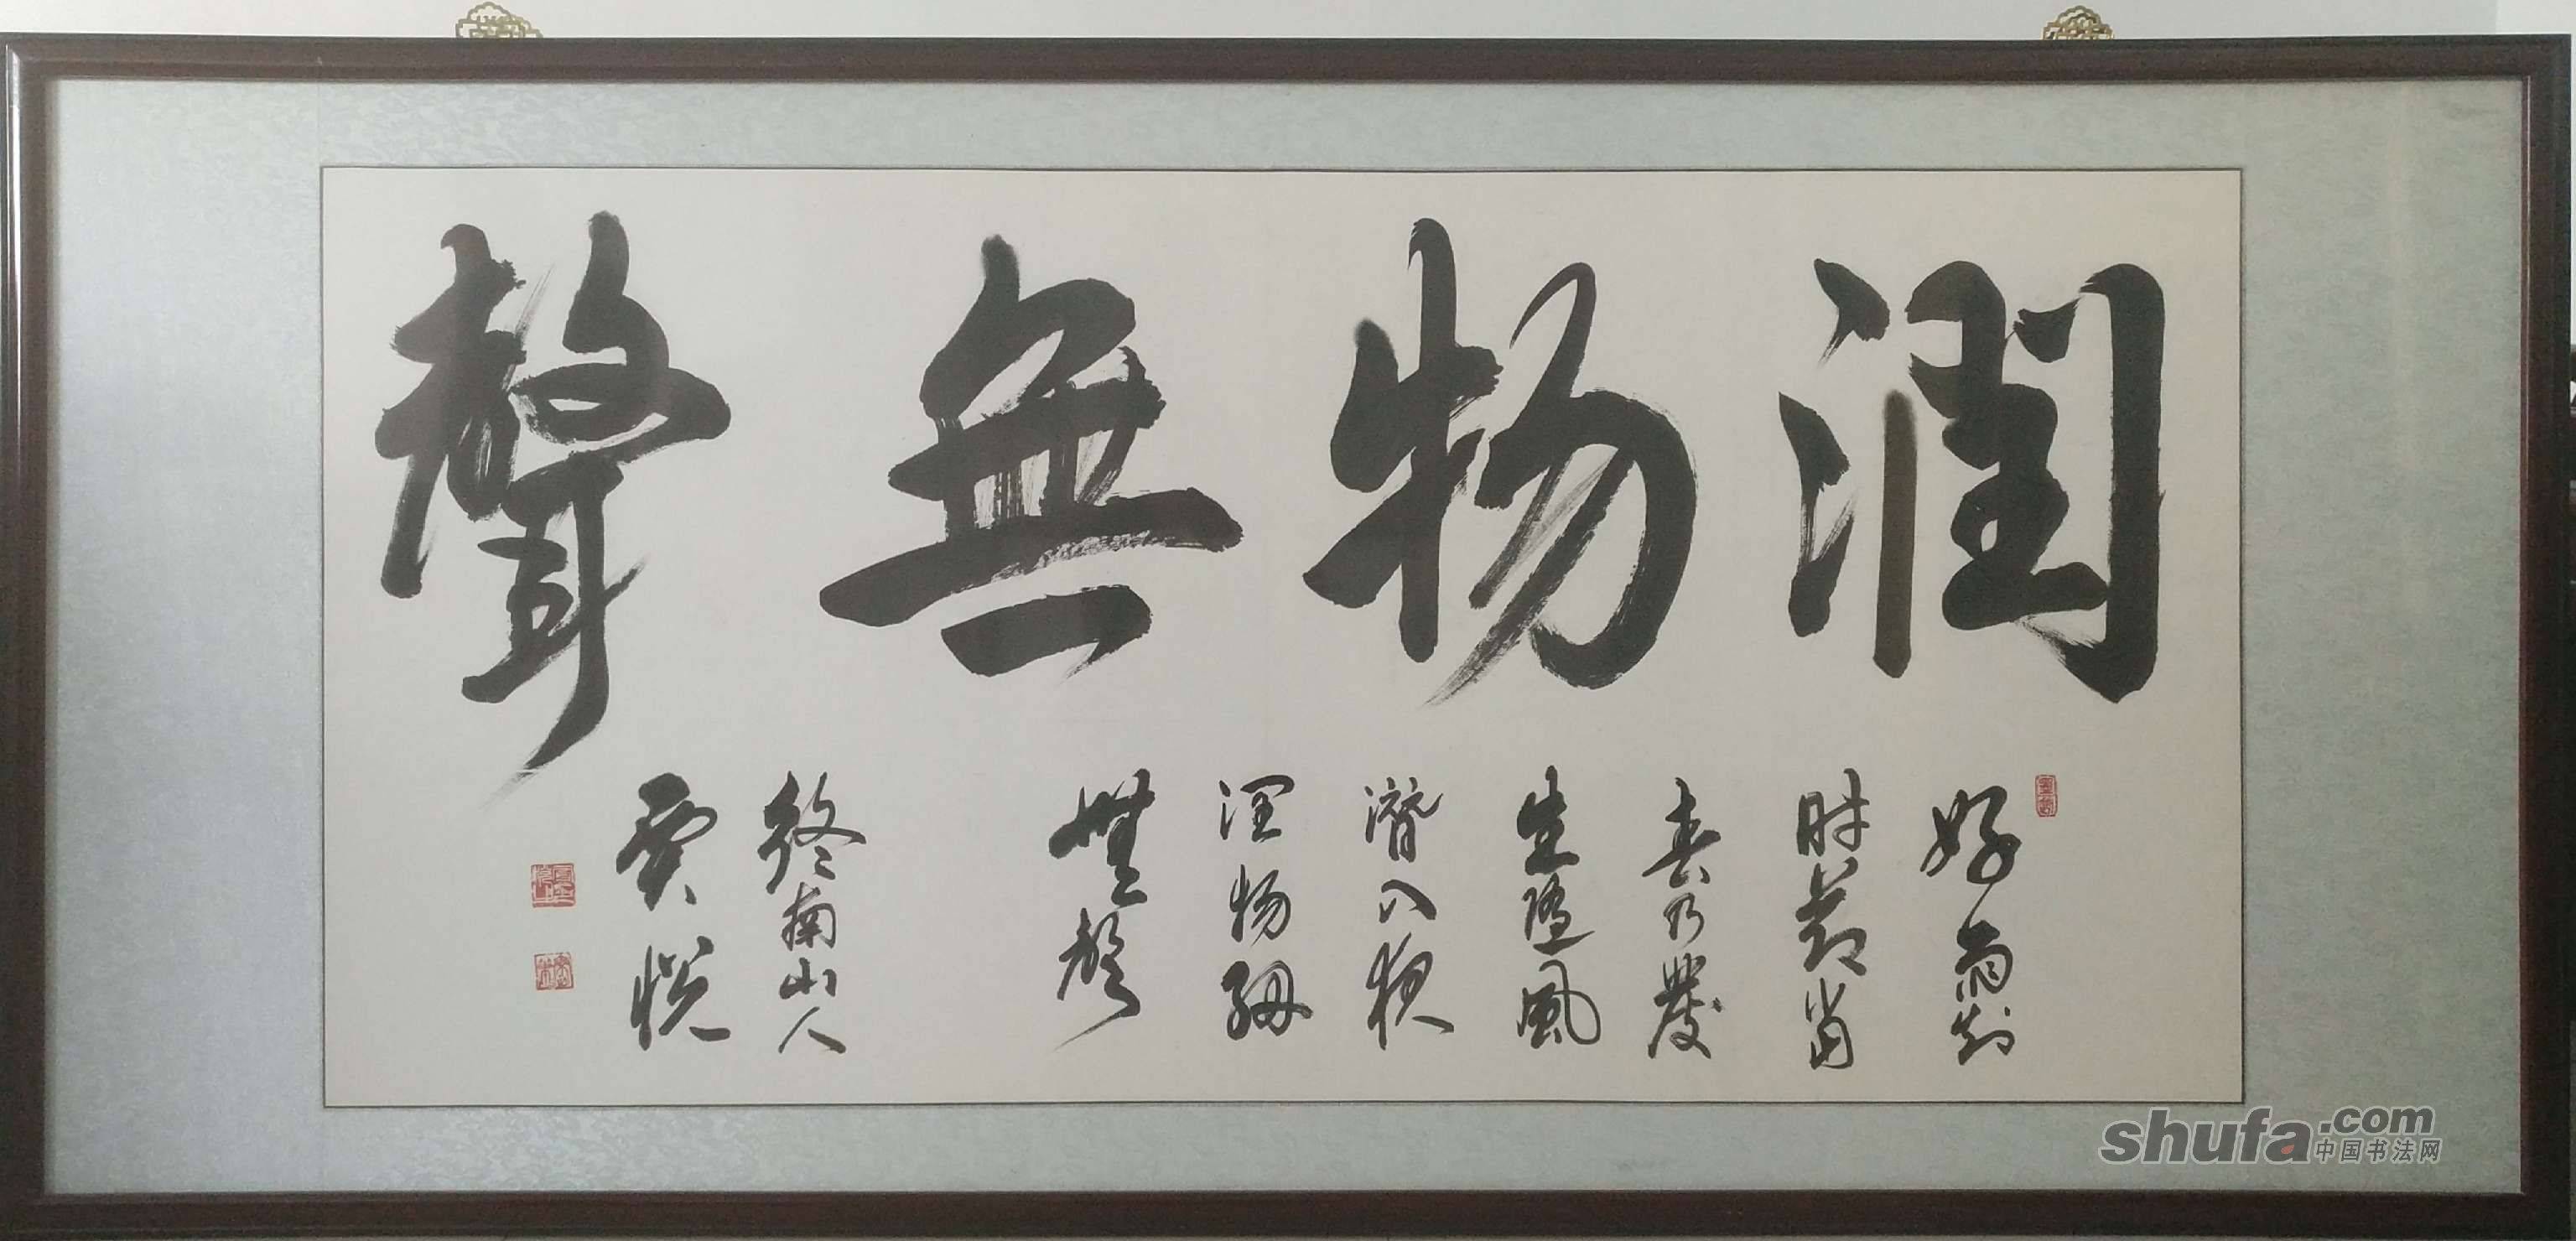 潤物無聲
好雨知
时節當
春乃發
生隨風
潛入夜
潤物細
無聲
終南山人
賈悦
shufa.com
中国书法网